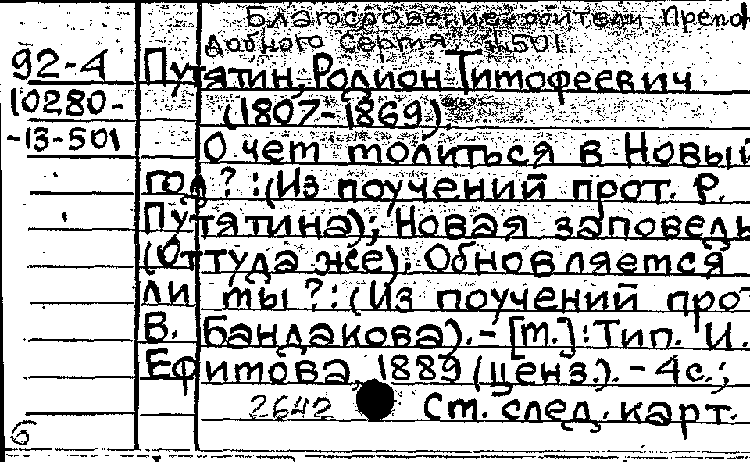 Благословение обители Препо
добного Сергия. 1.501.
92-4 Путятин, Родион Тимофеевич
10280- (1807-1869)
-13-501 О чем молиться в Новый
год?: (Из поучений прот. Р.
Путятина); Новая заповедь
(Оттуда же). Обновляется
ли ты?: (Из поучений прот
В. Бандакова). - [М.]: Тип. И.
Ефимова, 1889 (ценз.). - 4 с.;
2642 См. след. карт.
6